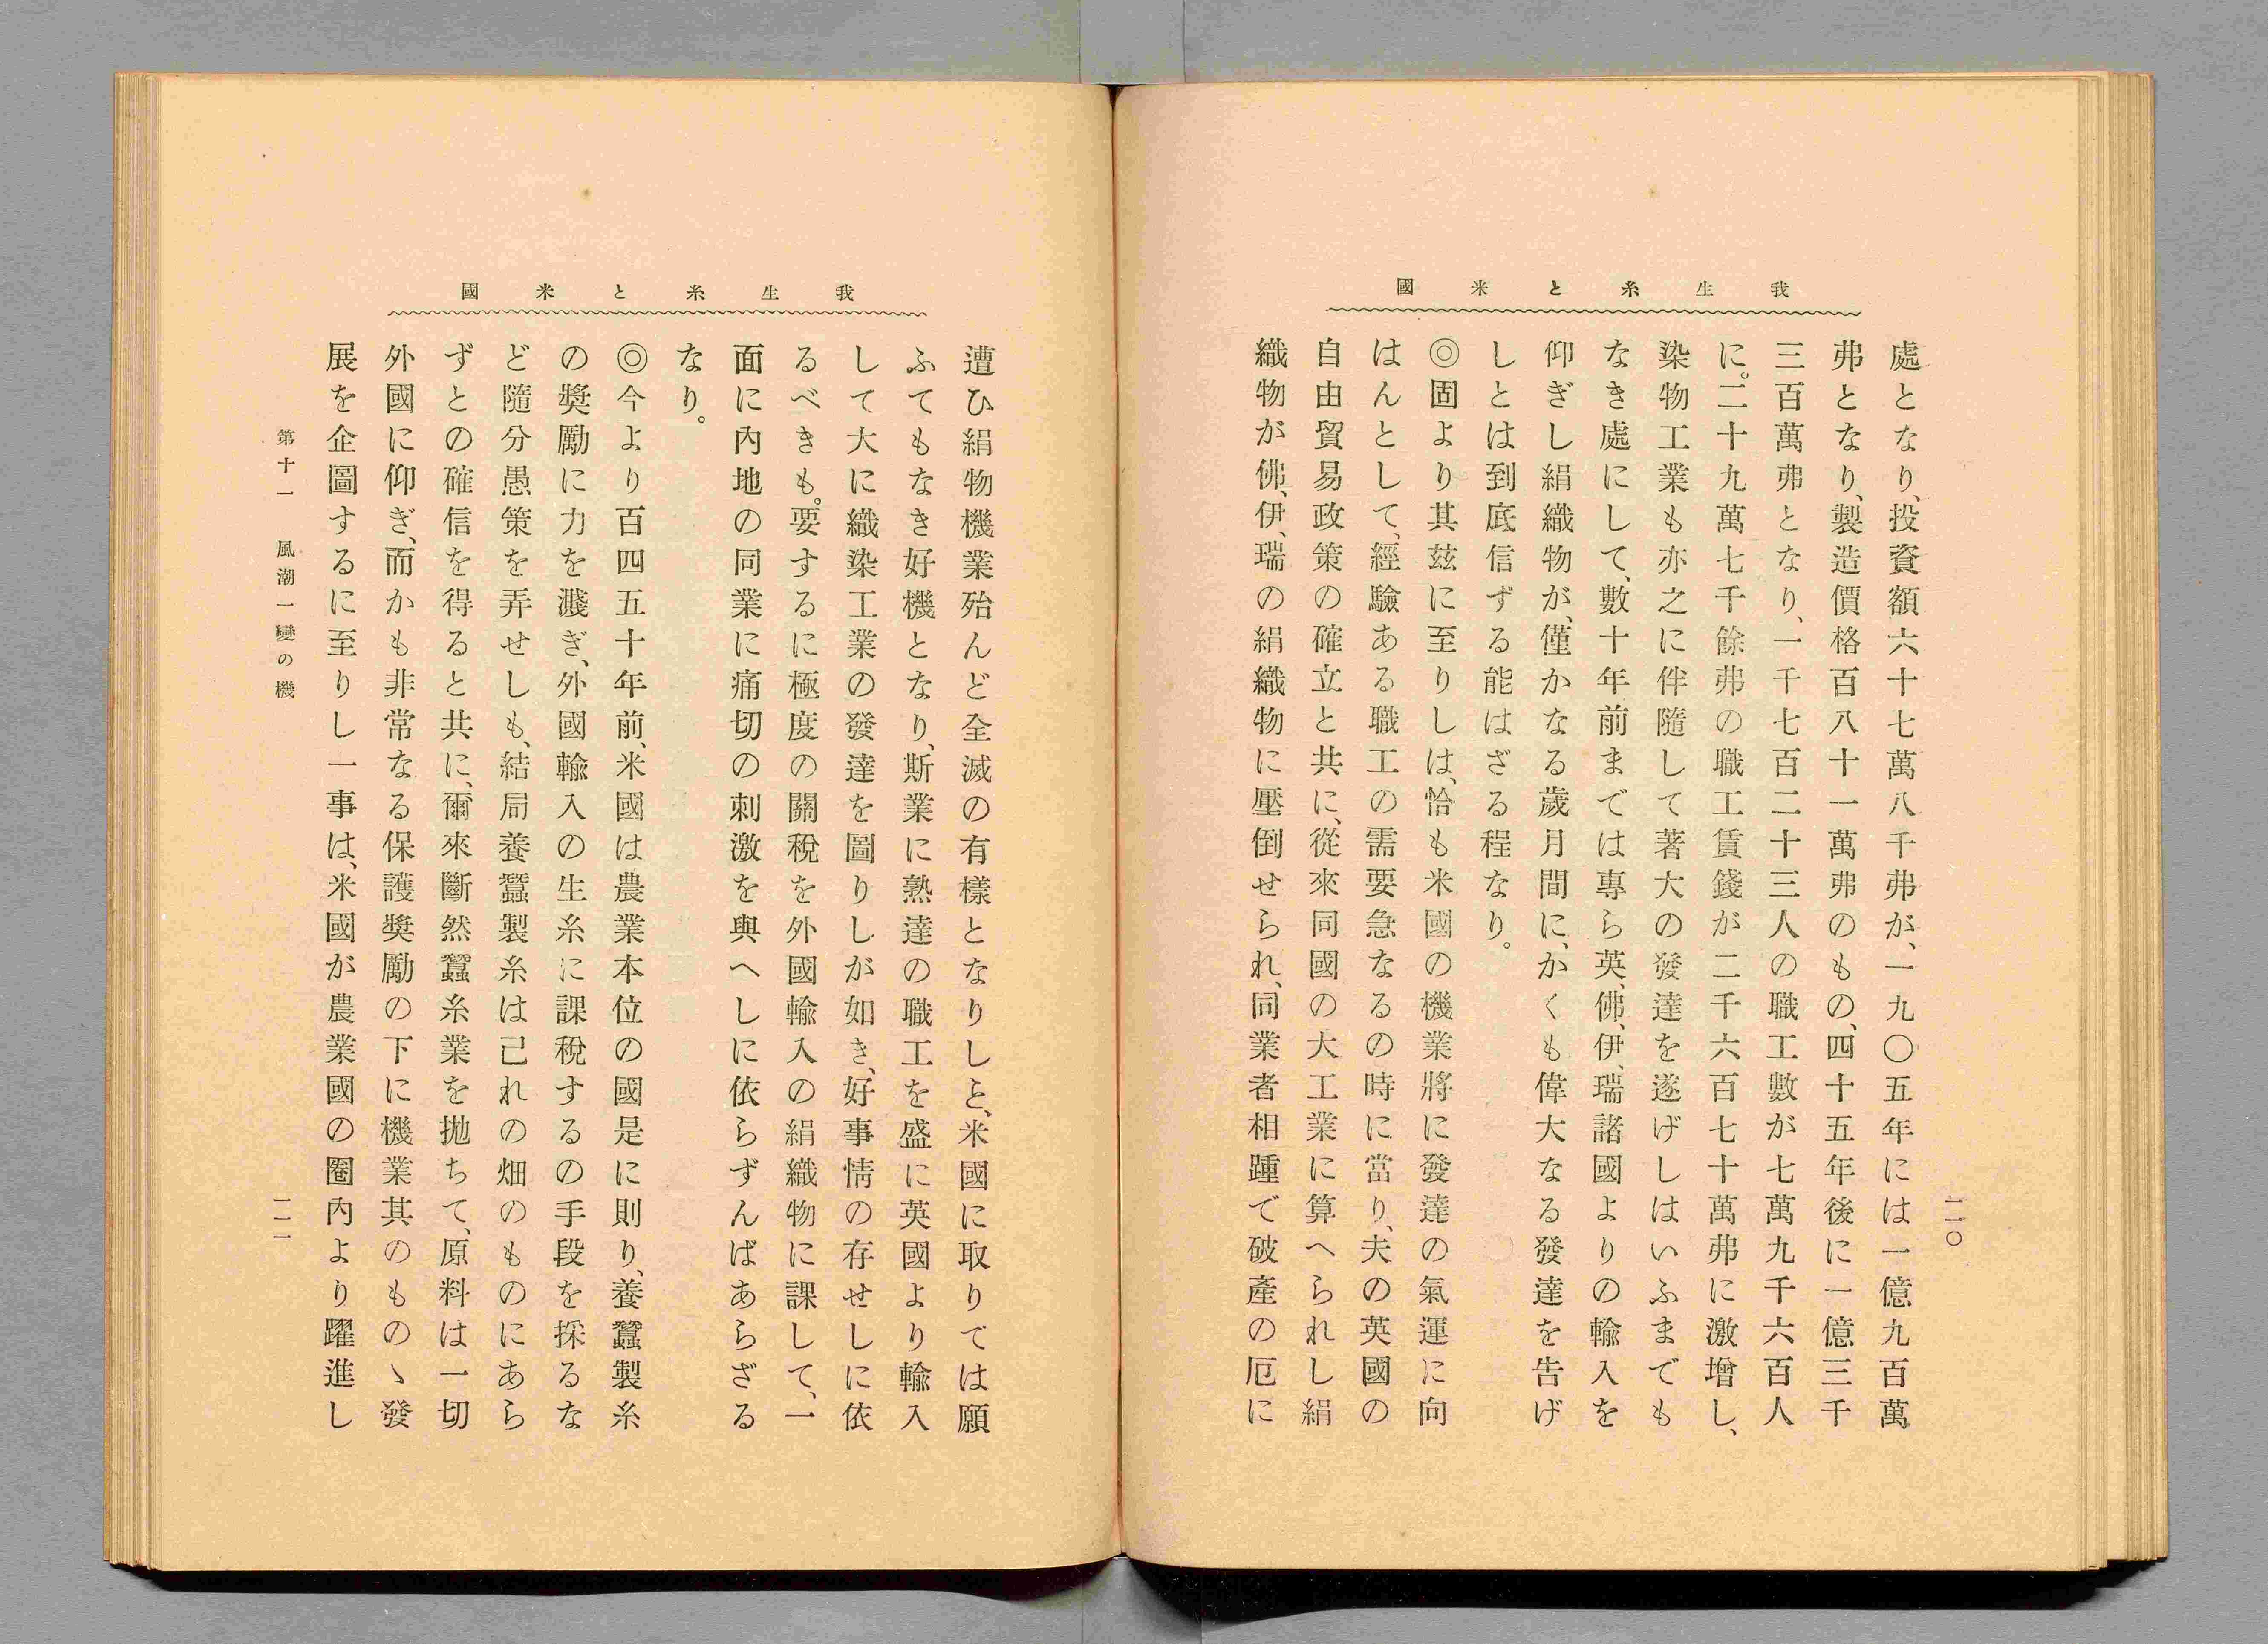 我生糸と米國
處となり、投資額六十七萬八千弗が、一九〇五年には一億九百萬
弗となり、製造價格百八十一萬弗のもの、四十五年後に一億三千
三百萬弗となり、一千七百二十三人の職工數が七萬九千六百人
に。二十九萬七千餘弗の職工賃錢が二千六百七十萬弗に激增し、
染物工業も亦之に伴隨して著大の發達を遂げしはいふまでも
なき處にして、數十年前までは專ら英、佛、伊、瑞諸國よりの輸入を
仰ぎし絹織物が、僅かなる歲月間に、かくも偉大なる發達を告げ
しとは到底信ずる能はざる程なり。
◎固より其玆に至りしは、恰も米國の機業將に發達の氣運に向
はんとして、經驗ある職工の需要急なるの時に當り、夫の英國の
自由貿易政策の確立と共に、從來同國の大工業に算へられし絹
織物が佛、伊、瑞の絹織物に壓倒せられ、同業者相踵で破產の厄に
一一〇
我生糸と米國
遭ひ絹物機業殆んど全滅の有樣となりしと、米國に取りては願
ふてもなき好機となり、斯業に熟達の職工を盛に英國より輸入
して大に織染工業の發達を圖りしが如き、好事情の存せしに依
るべきも。要するに極度の關稅を外國輸入の絹織物に課して、一
面に內地の同業に痛切の刺激を與へしに依らずんばあらざる
なり。
◎今より百四五十年前、米國は農業本位の國是に則り、養蠶製糸
の獎勵に力を濺ぎ、外國輸入の生糸に課稅するの手段を採るな
ど隨分愚策を弄せしも、結局養蠶製糸は己れの畑のものにあら
ずとの確信を得ると共に、爾來斷然蠶糸業を抛ちて、原料は一切
外國に仰ぎ、而かも非常なる保護獎勵の下に機業其のものゝ發
展を企圖するに至りし一事は、米國が農業國の圈內より躍進し
第十一 風潮一變の機
一一一